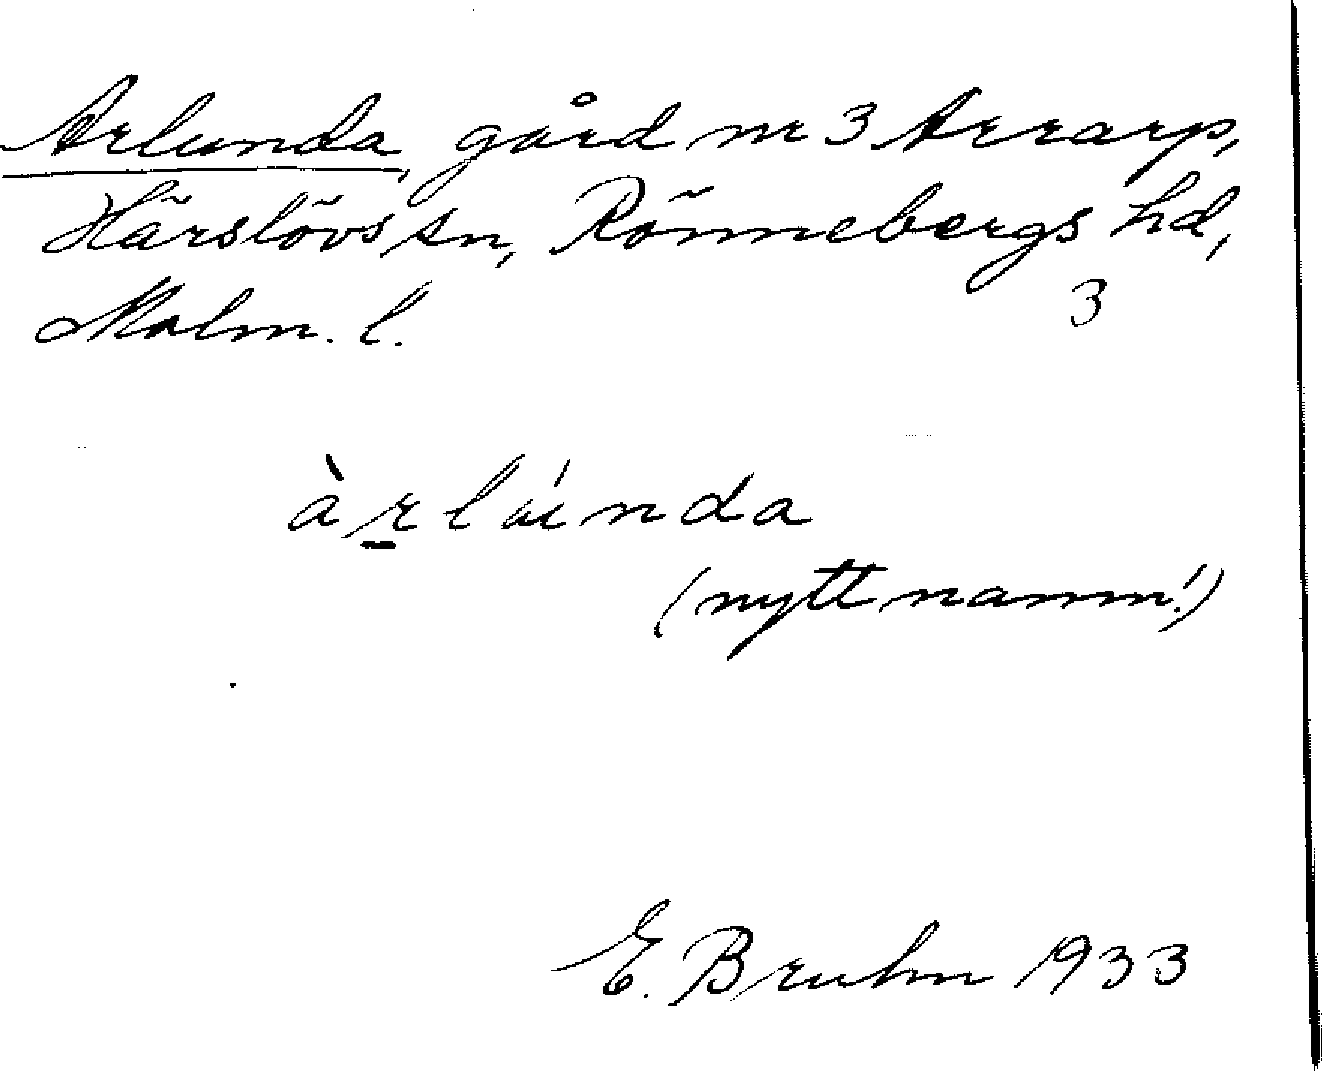 Arlunda, gård nr 3 Arrarp,
Härslövs sn, Rönnebergs hd,
Malm. l.
3
àr̲lúnda
(nytt namn!)
E. Bruhn 1933